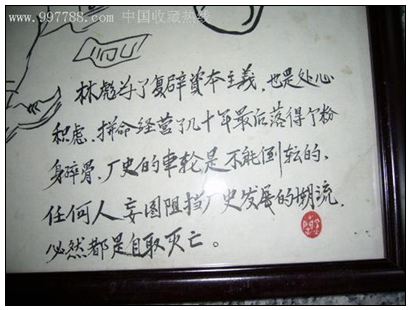 www.997788.com 中国收藏热线
林彪为了复辟資本主義，也是处心
积虑，拼命经营了几十年最后落得个粉
身碎骨，厂史的車轮是不能倒転的，
任何人妄图阻挡厂史发展的潮流，
必然都是自取灭亡。